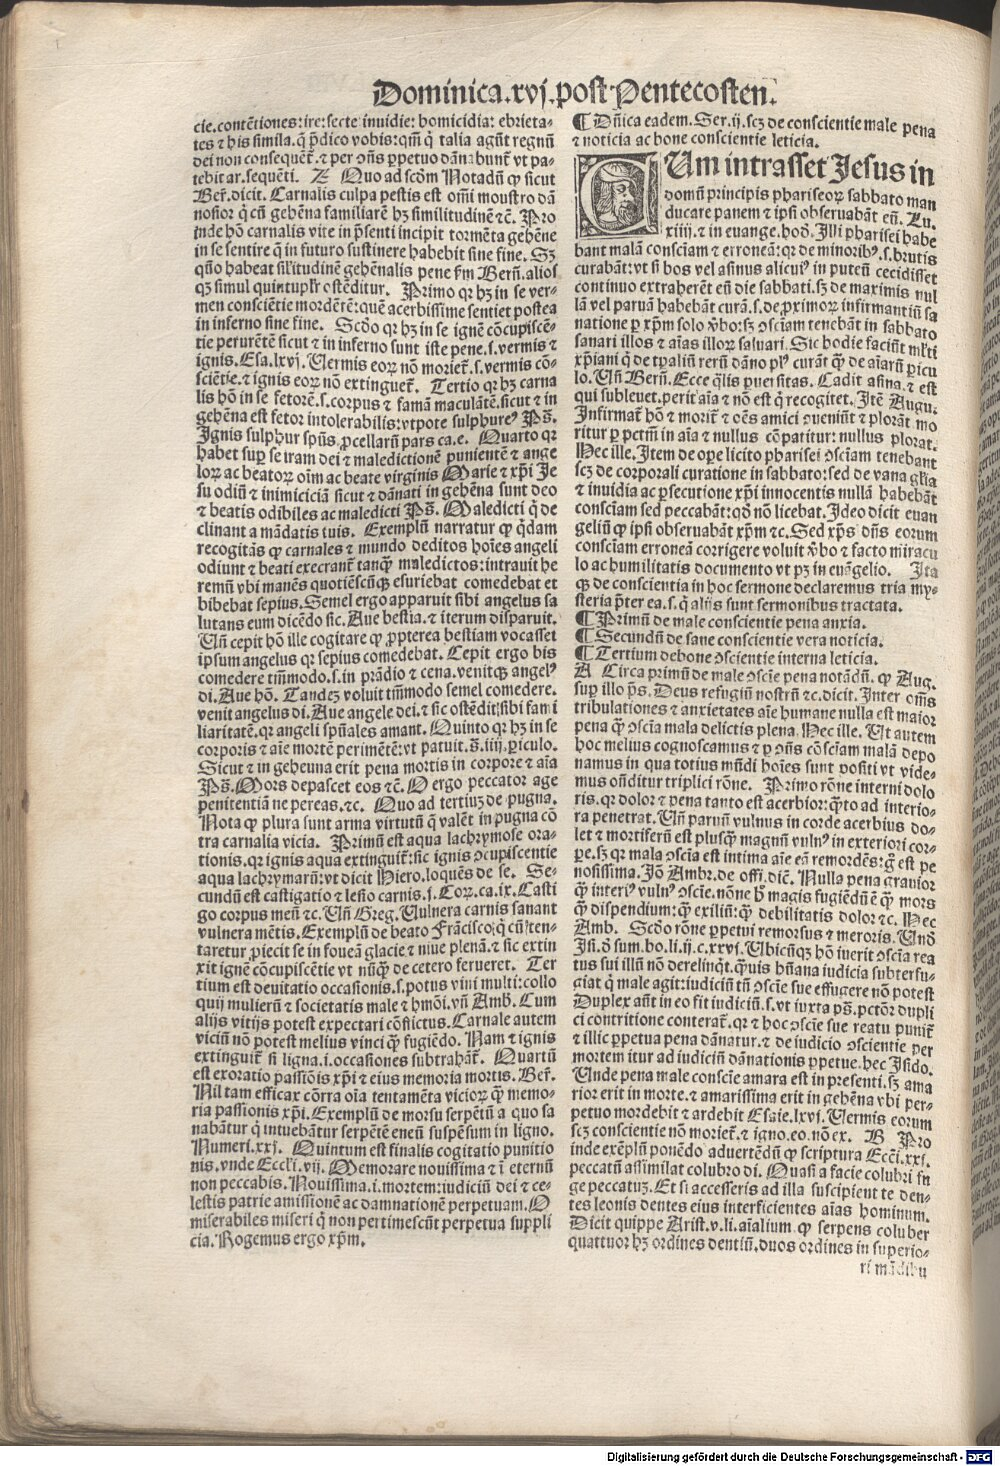 Dominica.xvj.post Pentecosten.
cie.contẽtiones:ire:secte inuidie: homicidia: ebrieta-
tes ⁊ his simila.q̃ p̃dico vobis:qm̃ q̃ talia agũt regnũ
dei non consequẽt̃.⁊ per oñs ꝑpetuo dãnabunt̃ vt pa-
tebit ar.sequẽti. Z Quo ad scðm Notadũ ꝙ sicut
Beř.dicit. Carnalis culpa pestis est om̃i moustro dã
nosior q̃ cũ gehẽna familiarẽ hꝫ similitudinẽ ⁊č. Pro
inde hõ carnalis vite in p̃senti incipit tormẽta gehẽne
in se sentire q̃ in futuro sustinere habebit sine fine. Sꝫ
qũo habeat sil̃itudinẽ gehẽnalis pene fm̃ Berñ.alios
qꝫ simul quintupl̃r oštẽditur. Primo qr hꝫ in se ver-
men consciẽtie mordẽtẽ:quẽ acerbissime sentiet postea
in inferno sine fine. Scðo qr hꝫ in se ignẽ cõcupiscẽ-
tie perurẽtẽ sicut ⁊ in inferno sunt iste pene.s.vermis ⁊
ignis.Esa.lxvj. Vermis eoꝝ nõ moriet̃.s.vermis cõ-
sciẽtie.⁊ ignis eoꝝ nõ extinguet̃. Tertio qr hꝫ carna
lis hõ in se fetorẽ.s.corpus ⁊ famã maculãtẽ.sicut ⁊ in
gehẽna est fetor intolerabilis:vtpote sulphureꝰ Pš.
Ignis sulphur spũs ꝓcellarũ pars ca.e. Quarto qr
habet sup̱ se iram dei ⁊ maledictionẽ punientẽ ⁊ ange
loꝝ ac beatoꝝ oĩm ac beate virginis Marie ⁊ xp̃i Je
su odiũ ⁊ inimiciciã sicut ⁊ dãnati in gehẽna sunt deo
⁊ beatis odibiles ac maledicti Pš. Maledicti q̃ de
clinant a mãdatis tuis. Exemplũ narratur ꝙ q̃dam
recogitãs ꝙ carnales ⁊ mundo deditos hoĩes angeli
odiunt ⁊ beati execrant̃ tanqᷓ maledictos: intrauit he
remũ vbi manẽs quotiẽscũqꝫ esuriebat comedebat et
bibebat sepius. Semel ergo apparuit sibi angelus sa
lutans eum dicẽdo sic. Aue bestia.⁊ iterum disparuit.
Vñ cepit hõ ille cogitare ꝙ ꝓpterea bestiam vocasset
ipsum angelus qr sepius comedebat. Cepit ergo bis
comedere tm̃modo.s.in prãdio ⁊ cena.venitqꝫ angelꝰ
di. Aue hõ. Tandeꝫ voluit tm̃modo semel comedere.
venit angelus di. Aue angele dei.⁊ sic ostẽdit sibi fami
liaritatẽ.qr angeli spũales amant. Quinto qr hꝫ in se
corporis ⁊ aĩe mortẽ perimẽtẽ:vt patuit.š.iiij.ꝑiculo.
Sicut ⁊ in geheuna erit pena mortis in corpore ⁊ aĩa
Pš. Mors depascet eos ⁊č. O ergo peccator age
penitentiã ne pereas.⁊c. Quo ad tertiuꝫ de pugna.
Nota ꝙ plura sunt arma virtutũ q̃ valẽt in pugna cõ
tra carnalia vicia. Primũ est aqua lachrymose ora-
tionis.qr ignis aqua extinguit̃:sic ignis ↄcupiscentie
aqua lachrymarũ:vt dicit Hiero.loquẽs de se. Se-
cundũ est castigatio ⁊ lesio carnis.j. Coꝝ.ca.ix. Casti
go corpus meũ ⁊c. Vñ Greg. Vulnera carnis sanant
vulnera mẽtis. Exemplũ de beato Frãcisco:q̃ cũ ten-
taretur ꝓiecit se in foueã glacie ⁊ niue plenã.⁊ sic extin
xit ignẽ cõcupiscẽtie vt nũqᷓ de cetero ferueret. Ter
tium est deuitatio occasionis.s.potus vini multi:collo
quij mulierũ ⁊ societatis male ⁊ hmõi.vñ Amb. Cum
alijs vitijs potest expectari cõflictus. Carnale autem
viciũ nõ potest melius vinci qᷓ fugiẽdo. Nam ⁊ ignis
extinguit̃ si ligna.i.occasiones subtrahãt̃. Quartũ
est exoratio passiõis xp̃i ⁊ eius memoria mortis. Beř.
Nil tam efficax cõtra oĩa tentamẽta vicioꝝ qᷓ memo-
ria passionis xp̃i. Exemplũ de morsu serpẽtũ a quo sa
nabãtur q̃ intuebãtur serpẽtẽ eneũ suspẽsum in ligno.
Numeri.xxj. Quintum est finalis cogitatio punitio
nis.vnde Eccl̃i.vij. Memorare nouissima ⁊ ĩ eternũ
non peccabis. Nouissima.i.mortem:iudiciũ dei ⁊ ce-
lestis patrie amissionẽ ac damnationẽ perpetuam. O
miserabiles miseri q̃ non pertimescũt perpetua suppli
cia. Rogemus ergo xp̃m.
¶ Dñica eadem. Ser.ij.scꝫ de conscientie male pena
⁊ noticia ac bone conscientie leticia.
CUm intrasset Jesus in
domũ principis phariseoꝝ sabbato man
ducare panem ⁊ ipsi obseruabãt eũ. Lu.
xiiij.⁊ in euange.hoď. Illi pharisei habe
bant malã consciam ⁊ erroneã:qr de minoribꝰ.s.brutis
curabãt:vt si bos vel asinus alicuiꝰ in puteũ cecidisset
continuo extraherẽt eũ die sabbati.sꝫ de maximis nul
lã vel paruã habebãt curã.s.de ꝓximoꝝ infirmantiũ sa
natione ꝑ xp̃m solo v̾bo:sꝫ ↄsciam tenebãt in sabbato
sanari illos ⁊ aĩas illoꝝ saluari. Sic hodie faciũt ml̃ti
xp̃iani q̃ de tꝑaliũ rerũ dãno plꝰ curãt qᷓ de aĩarũ ꝑicu
lo. Vñ Berñ. Ecce q̃lis ꝑuersitas. Cadit asina.⁊ est
qui subleuet.perit aĩa ⁊ nõ est q̃ recogitet. Itẽ Augu.
Infirmat̃ hõ ⁊ morit̃ ⁊ oẽs amici ↄueniũt ⁊ plorãt mo
ritur ꝑ pctm̃ in aĩa ⁊ nullus cõpatitur: nullus plorat.
Hec ille. Item de oꝑe licito pharisei ↄsciam tenebant
scꝫ de corporali curatione in sabbato: sed de vana gl̃ia
⁊ inuidia ac ꝑsecutione xp̃i innocentis nullã habebãt
consciam sed peccabãt: qð nõ licebat. Ideo dicit euan
geliũ ꝙ ipsi obseruabãt xp̃m ⁊c. Sed xp̃s dñs eorum
consciam erroneã corrigere voluit v̾bo ⁊ facto miracu
lo ac humilitatis documento vt pꝫ in euãgelio. Ita
qꝫ de conscientia in hoc sermone declaremus tria my-
steria p̃ter ea.s.q̃ alijs sunt sermonibus tractata.
¶ Primũ de male conscientie pena anxia.
¶ Secundũ de sane conscientie vera noticia.
¶ Tertium de bone ↄscientie interna leticia.
A Circa primũ de male ↄscie pena notãdũ. ꝙ Aug.
sup̱ illo p̃s. Deus refugiũ nostrũ ⁊c.dicit. Inter om̃s
tribulationes ⁊ anxietates aĩe humane nulla est maior
pena qᷓ ↄscia mala delictis plena. Hec ille. Vt autem
hoc melius cognoscamus ⁊ ꝑ oñs cõsciam malã depo
namus in qua totius mũdi hoĩes sunt positi vt vide-
mus oñditur triplici rõne. Primo rõne interni dolo
ris.qr dolor ⁊ pena tanto est acerbior: qᷓto ad interio-
ra penetrat. Vñ paruũ vulnus in corde acerbius do-
let ⁊ mortiferũ est plusqᷓ magnũ vulnꝰ in exteriori cor-
pe.sꝫ qr mala ↄscia est intima aĩe eã remordẽs: g̊ est pe
nosissima. Jõ Ambr.de offi.diĉ. Nulla pena grauior
qᷓ interiꝰ vulnꝰ ↄscie.nõne h̾ magis fugiẽdũ ẽ qᷓ mors
qᷓ dispendium: qᷓ exiliũ: qᷓ debilitatis dolor ⁊c. Hec
Amb. Scðo rõne ꝑpetui remorsus ⁊ meroris. Vnð
Isi.ð sum.bo.li.ij.c.xxvi. Vbicũqꝫ hõ iuerit ↄscia rea
tus sui illũ nõ derelinqt. qᷓuis hũana iudicia subterfu-
giat q̃ male agit: iudiciũ tñ ↄscie sue effugere nõ potest
Duplex aũt in eo fit iudiciũ.s.vt iuxta pš.pctõr dupli
ci contritione conterat̃.qr ⁊ hoc ↄscie sue reatu punit̃
⁊ illic ꝑpetua pena dãnatur.⁊ de iudicio ↄscientie per
mortem itur ad iudiciũ dãnationis ꝑpetue.hec Isido.
Vnde pena male conscie amara est in presenti.sꝫ ama
rior erit in morte.⁊ amarissima erit in gehẽna vbi per-
petuo mordebit ⁊ ardebit Esaie.lxvj. Vermis eorum
scꝫ conscientie nõ moriet̃.⁊ igno.eo.nõ ex. B Pro
inde exẽplũ ponẽdo aduertẽdũ ꝙ scriptura Ecci.xxj.
peccatũ assimilat colubro di. Quasi a facie colubri fu
ge peccatuꝫ. Et si accesseris ad illa suscipient te den-
tes leonis dentes eius interficientes aĩas hominum.
Dicit quippe Arist.v.li.aĩalium ꝙ serpens coluber
quattuor hꝫ ordines dentiũ. duos ordines in superio-
ri mãdibu
Digitalisierung gefördert durch die Deutsche Forschungsgemeinschaft - DFG